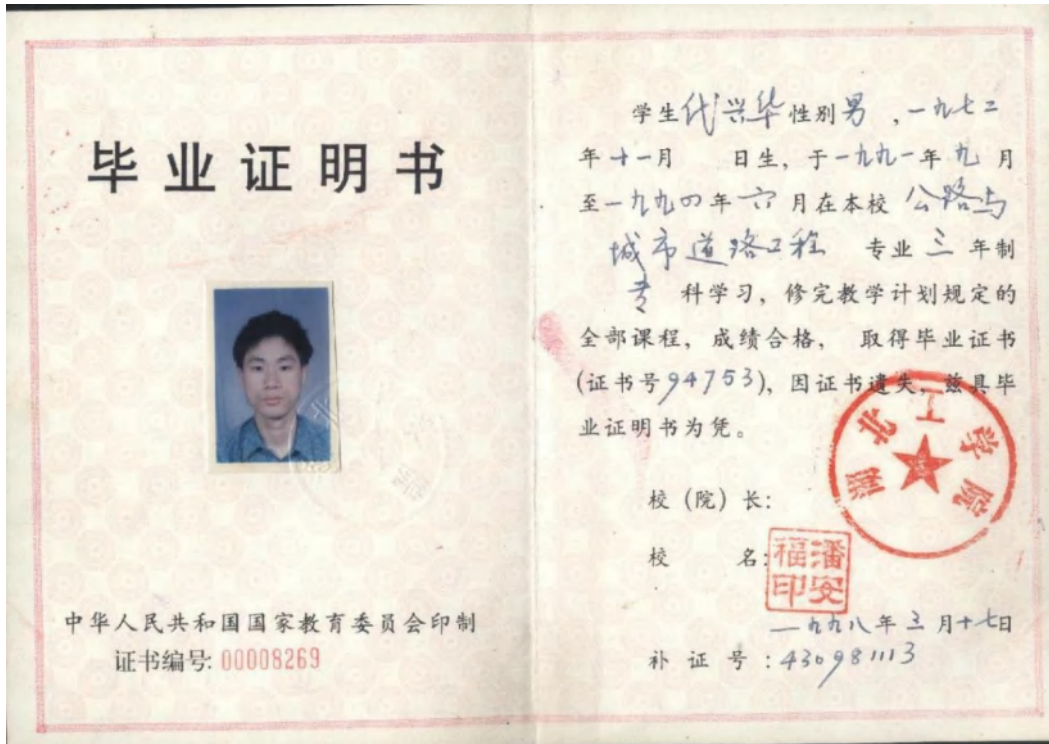 毕业证明书
中华人民共和国国家教育委员会印制
证书编号: 00008269
学生代兴华性别男，一九七二
年十一月 日生，于一九九一年九月
至一九九四年六月在本校公路与
城市道路工程 专业三年制
专科学习，修完教学计划规定的
全部课程，成绩合格， 取得毕业证书
(证书号94753)，因证书遗失，兹具毕
业证明书为凭。
湖北工学院
校（院）长：
校 名：
潘安福印
一九九八年三月十七日
补 证 号：430981113